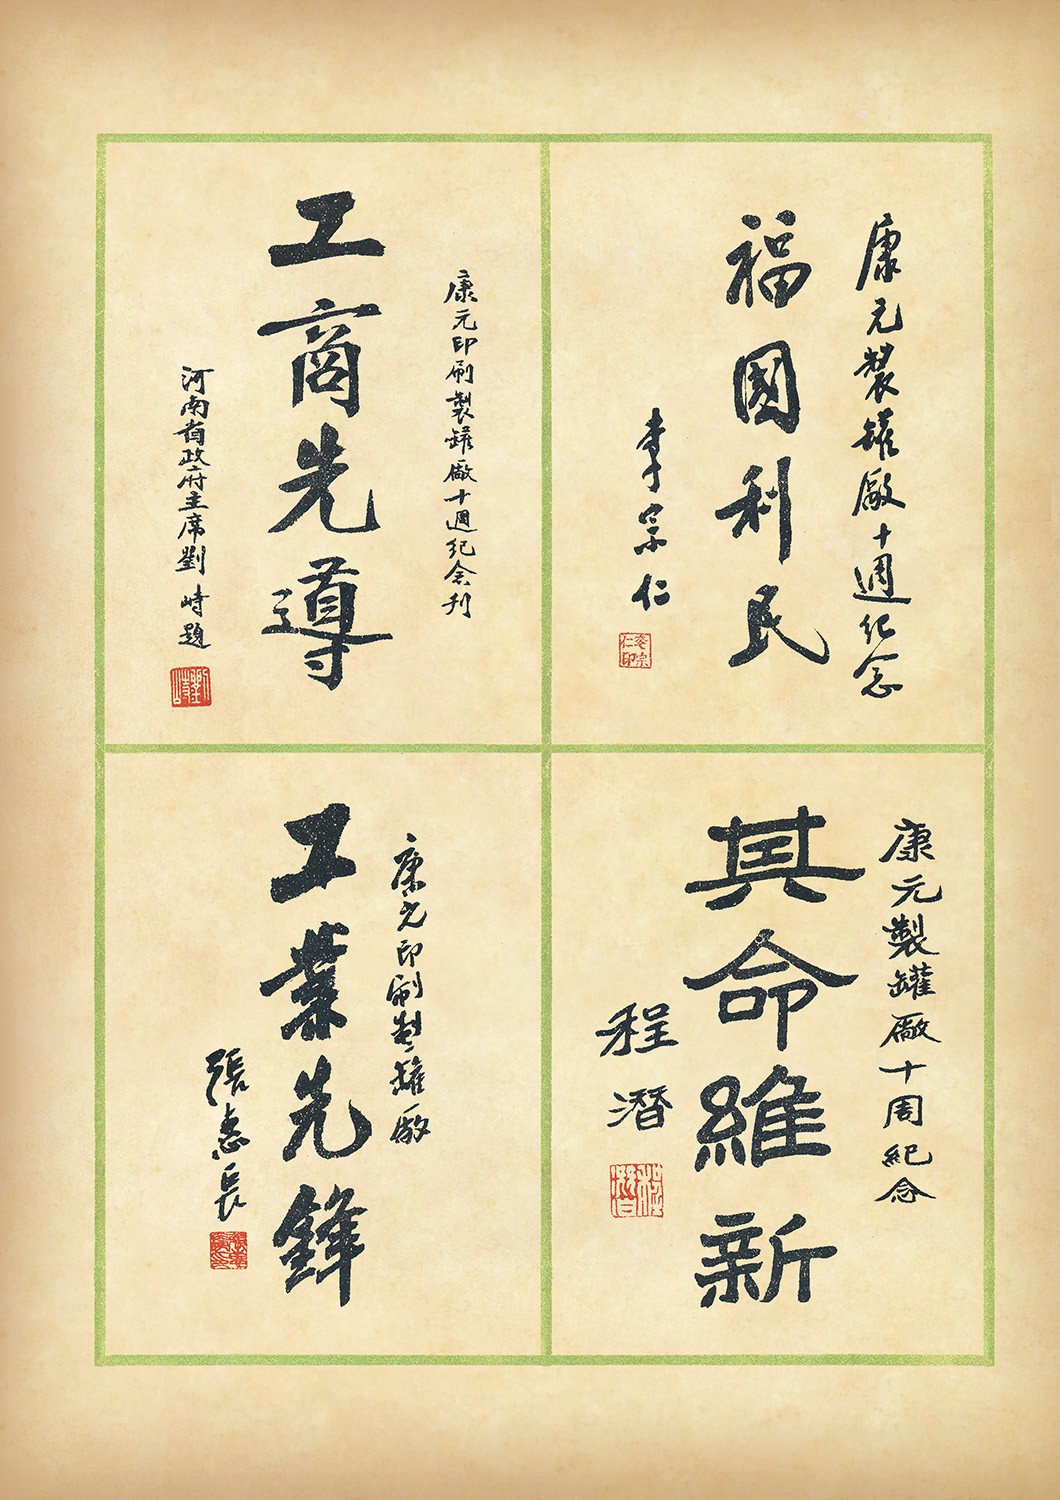 康元製罐廠十週紀念
福國利民
李宗仁
李宗仁印
康元印刷製罐廠十週紀念刊
工商先導
河南省政府主席劉峙題
康元製罐廠十周紀念
其命維新
程潛
康元印刷製罐廠
工業先鋒
張惠長